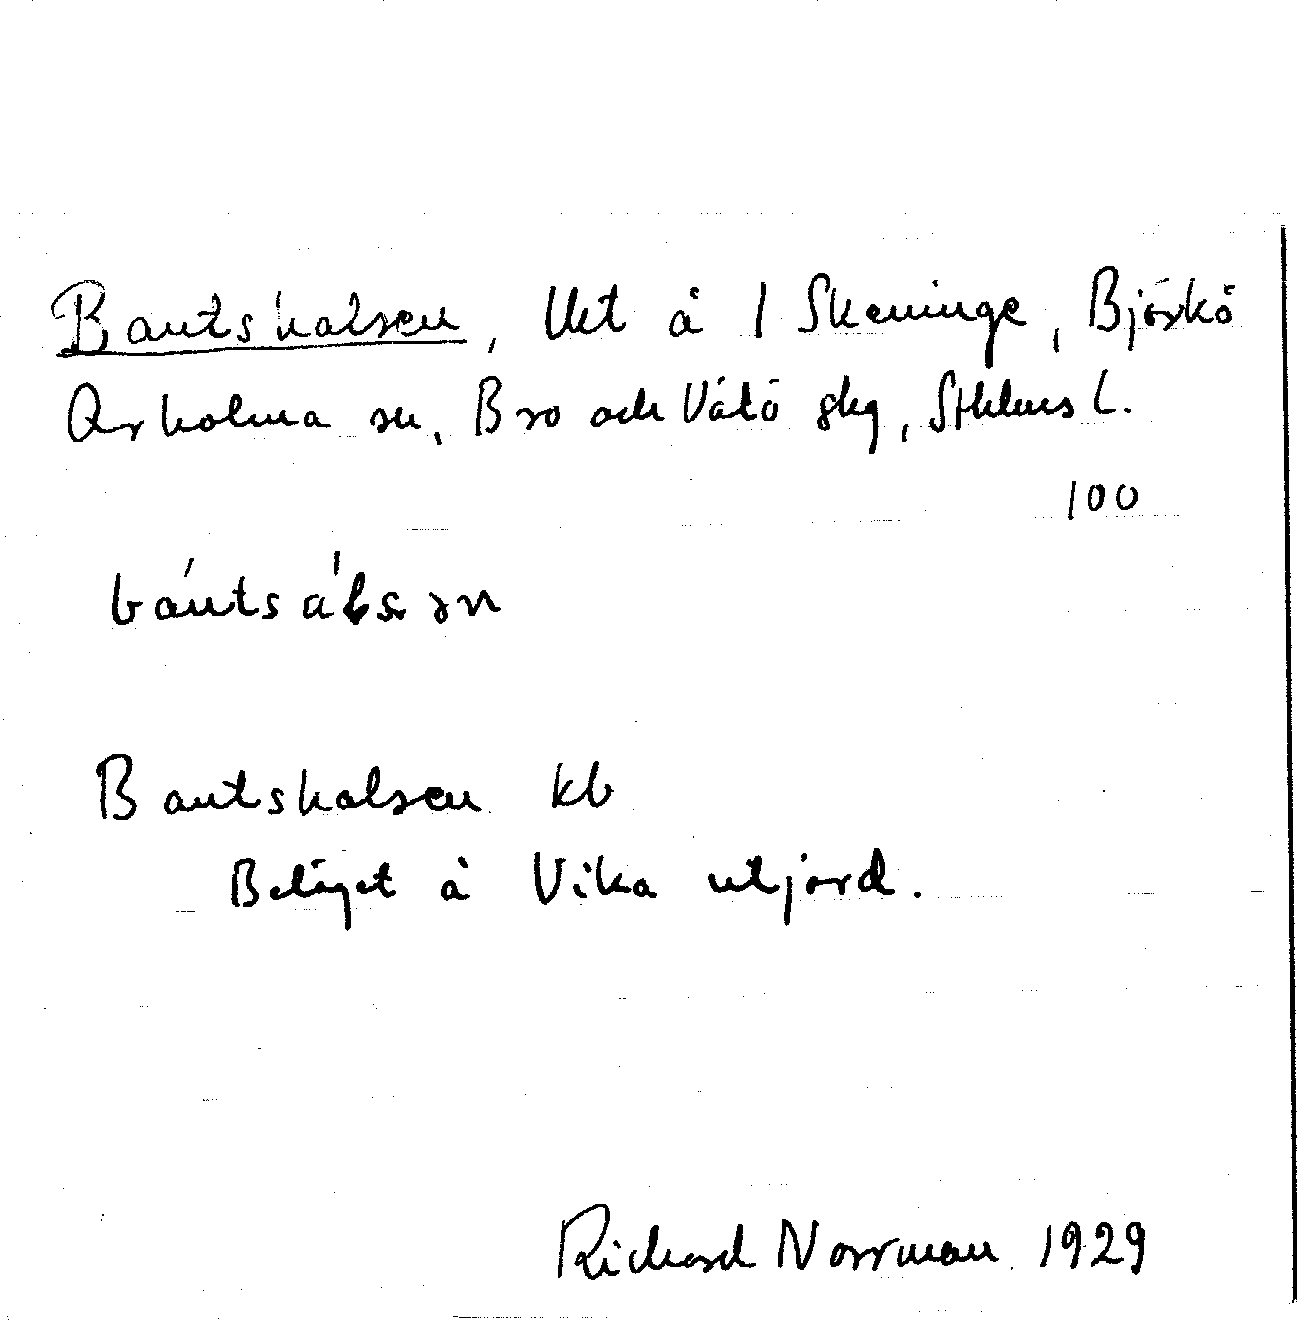 Bautshalsen, Ukt å 1 Skeninge, Björkö
Arholma sn, Bro och Vätö skg, Sthlms L.
100
Bautshalsen kb
Beläget å Vika utjord.
Richard Norrman 1929